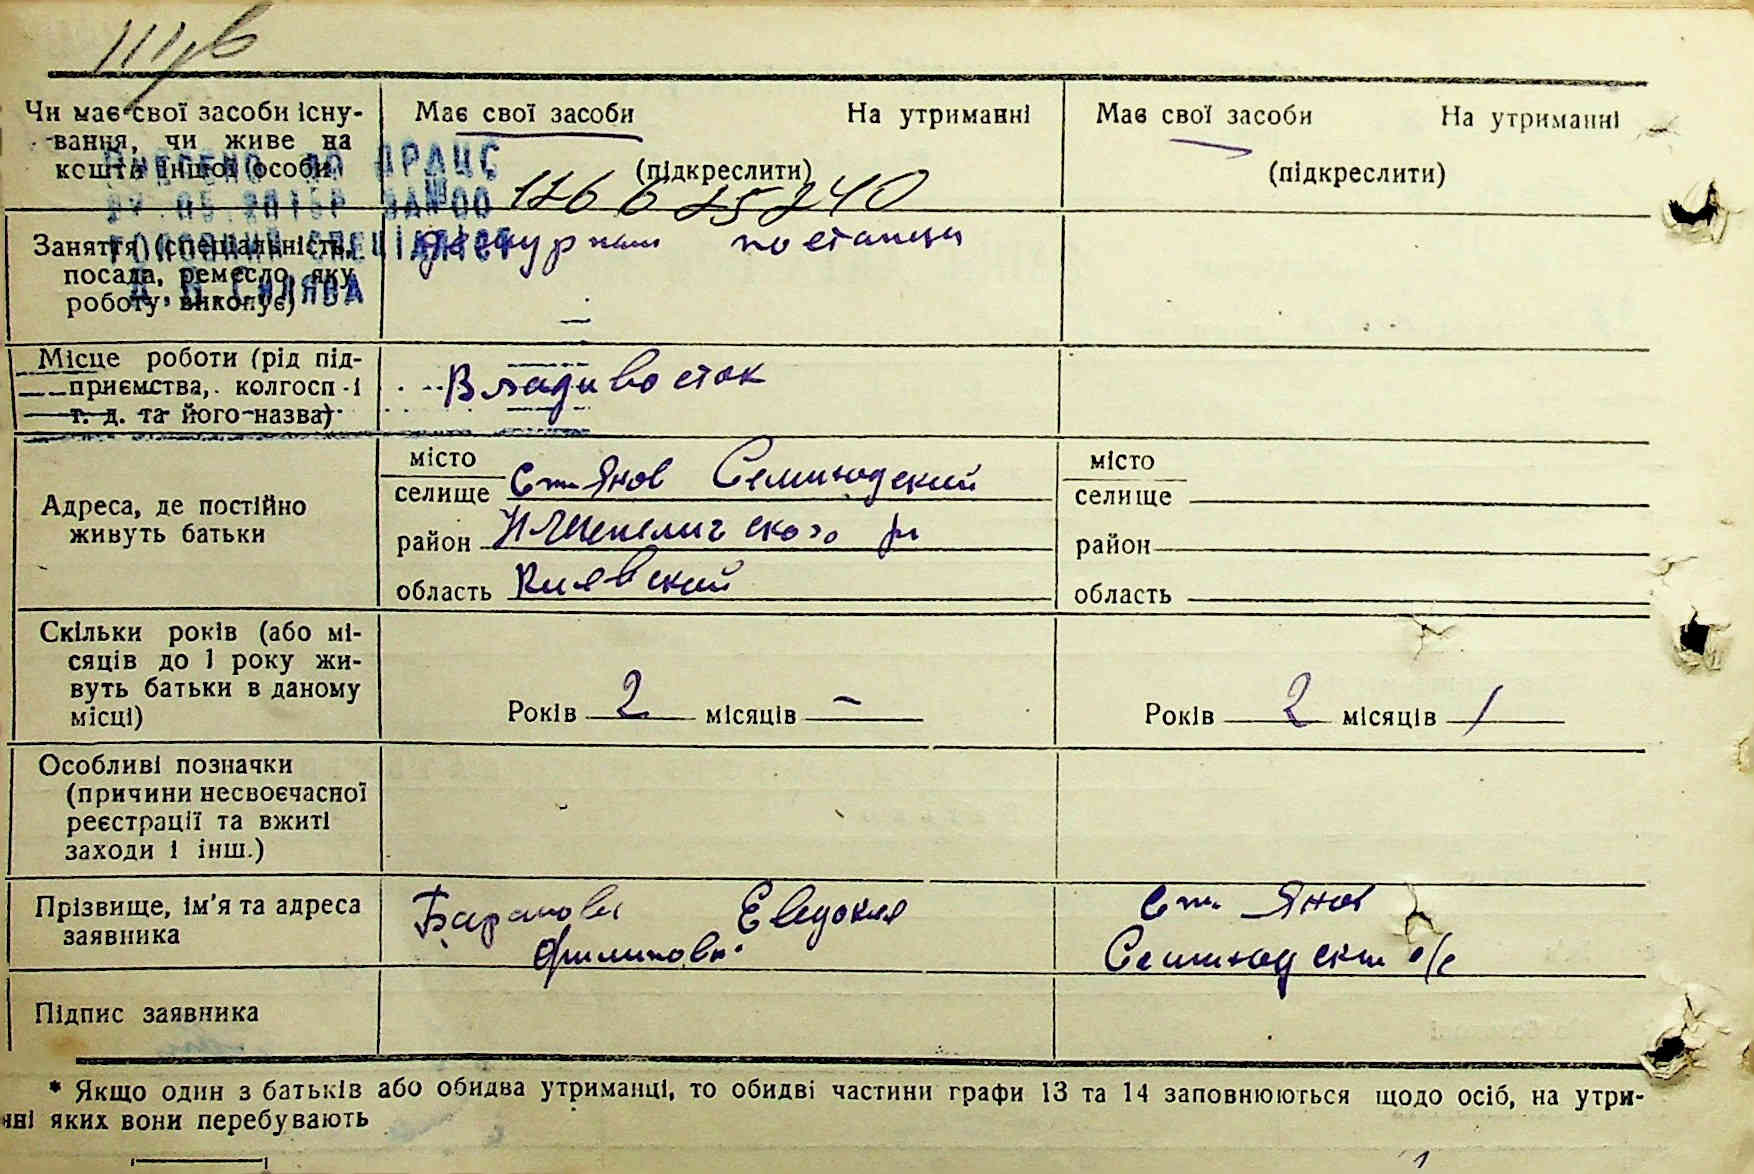 Чи має свої засоби існу-
вання, чи живе на
кошти іншої особи
Має свої засоби На утриманні
(підкреслити)
Має свої засоби На утриманні
(підкреслити)
ВНЕСЕНО ДО ДРАЦС
№00126625240
ГОЛОВНИЙ СПЕЦІАЛІСТ
Заняття (спеціальність,
посада, ремесло, яку
роботу виконує)
Дежурный по станции
Місце роботи (рід під-
приємства, колгосп і
т. д. та його назва)
Владивосток
Адреса, де постійно
живуть батьки
місто
селище Ст. Янов Семиходский
район И-Шепеличского р
область Киевский
місто
селище
район
область
Скільки років (або мі-
сяців до 1 року жи-
вуть батьки в даному
місці)
Років 2 місяців –
Років 2 місяців /
Особливі позначки
(причини несвоєчасної
реєстрації та вжиті
заходи і інш.)
Прізвище, ім'я та адреса
заявника
Баранова Евдокия
Филиповн.
Ст. Янов
Семиходским с/с
Підпис заявника
* Якщо один з батьків або обидва утриманці, то обидві частини графи 13 та 14 заповнюються щодо осіб, на утри-
нні яких вони перебувають